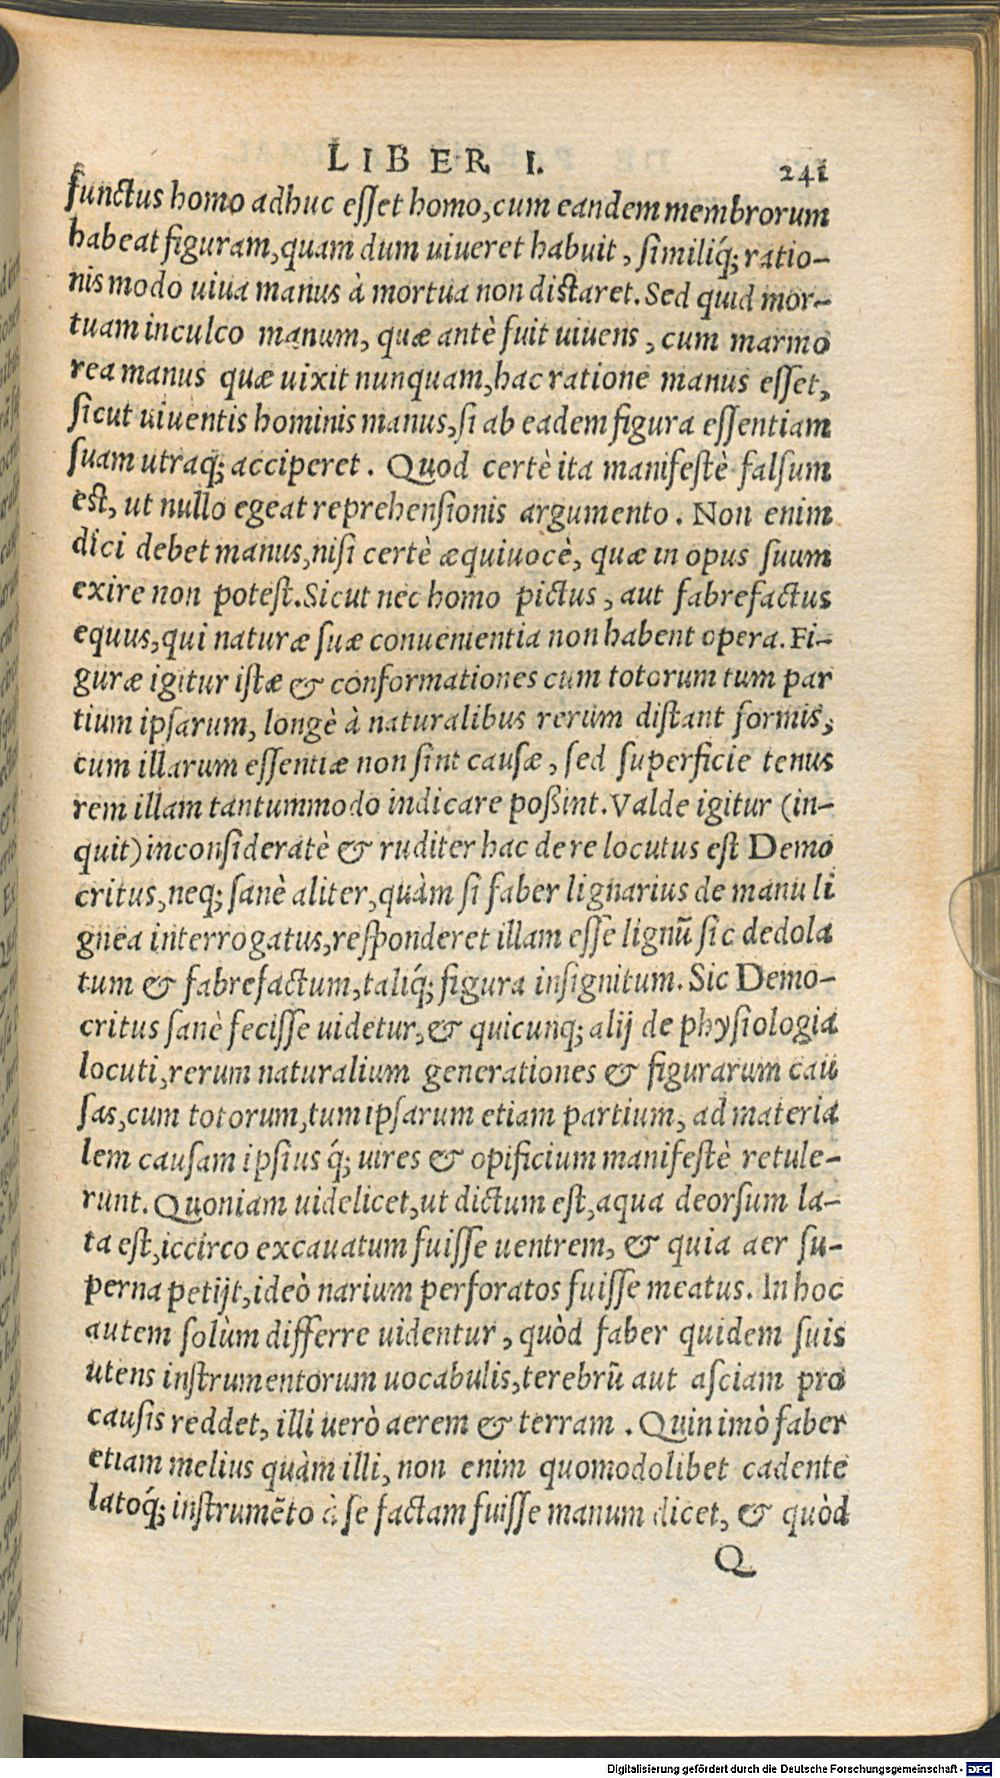 LIBER I. 241
functus homo adhuc esset homo, cum eandem membrorum
habeat figuram, quam dum uiueret habuit, similiq́; ratio-
nis modo uiua manus à mortua non distaret. Sed quid mor-
tuam inculco manum, quæ antè fuit uiuens, cum marmo
rea manus quæ uixit nunquam, hac ratione manus esset,
sicut uiuentis hominis manus, si ab eadem figura essentiam
suam utraq; acciperet. Quod certè ita manifestè falsum
est, ut nullo egeat reprehensionis argumento. Non enim
dici debet manus, nisi certè æquiuocè, quæ in opus suum
exire non potest. Sicut nec homo pictus, aut fabrefactus
equus, qui naturæ suæ conuenientia non habent opera. Fi-
guræ igitur istæ & conformationes cum totorum tum par
tium ipsarum, longè à naturalibus rerum distant formis,
cum illarum essentiæ non sint causæ, sed superficie tenus
rem illam tantummodo indicare poßint. Valde igitur (in-
quit) inconsideratè & ruditer hac de re locutus est Demo
critus, neq; sanè aliter, quàm si faber lignarius de manu li
gnea interrogatus, responderet illam esse lignũ sic dedola
tum & fabrefactum, taliq́; figura insignitum. Sic Demo-
critus sanè fecisse uidetur, & quicunq; alij de physiologia
locuti, rerum naturalium generationes & figurarum cau
sas, cum totorum, tum ipsarum etiam partium, ad materia
lem causam ipsius q́; uires & opificium manifestè retule-
runt. Quoniam uidelicet, ut dictum est, aqua deorsum la-
ta est, iccirco excauatum fuisse uentrem, & quia aer su-
perna petijt, ideò narium perforatos fuisse meatus. In hoc
autem solùm differre uidentur, quòd faber quidem suis
utens instrumentorum uocabulis, terebrũ aut asciam pro
causis reddet, illi uerò aerem & terram. Quin imò faber
etiam melius quàm illi, non enim quomodolibet cadente
latoq́; instrumẽto à se factam fuisse manum dicet, & quòd
Q
Digitalisierung gefördert durch die Deutsche Forschungsgemeinschaft - DFG